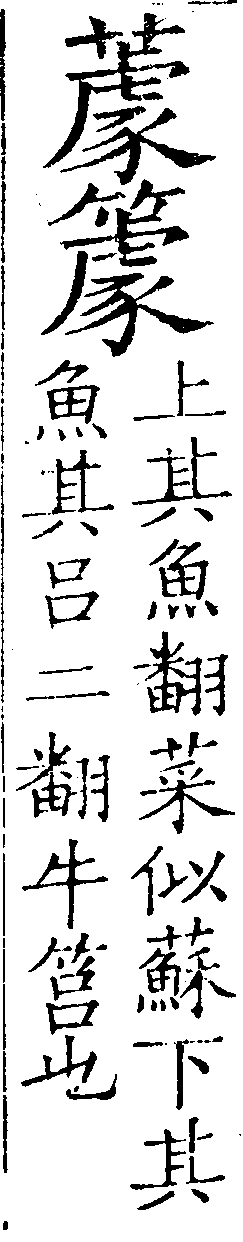 上其魚翻菜似蘇下其
魚其呂二翻牛筥也